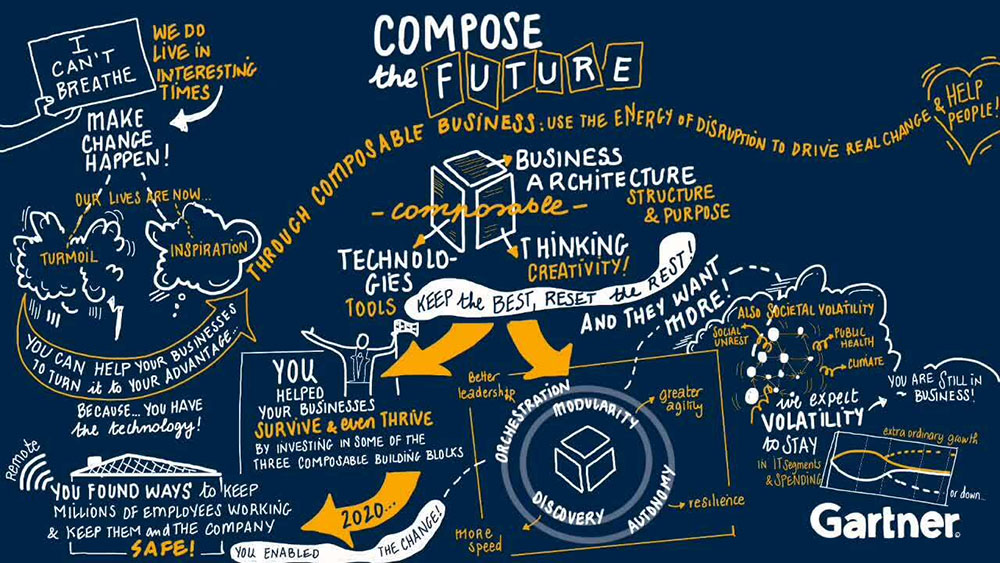 I
CAN'T
BREATHE
WE DO
LIVE IN
INTERESTING
TIMES
MAKE
CHANGE
HAPPEN!
OUR LIVES ARE NOW...
TURMOIL
INSPIRATION
YOU CAN HELP YOUR BUSINESSES
TO TURN it to YOUR ADVANTAGE...
BECAUSE... YOU HAVE
the technology!
Remote
YOU FOUND WAYS to KEEP
MILLIONS OF EMPLOYEES WORKING
& KEEP THEM and THE COMPANY
SAFE!
COMPOSE
the FUTURE
THROUGH COMPOSABLE BUSINESS: USE THE ENERGY OF DISRUPTION TO DRIVE REAL CHANGE & HELP
PEOPLE!
BUSINESS
ARCHITECTURE
STRUCTURE
& PURPOSE
- composable -
TECHNOLO-
GIES
TOOLS
THINKING
CREATIVITY!
KEEP the BEST, RESET the REST!
AND THEY WANT
MORE!
YOU
HELPED
YOUR BUSINESSES
SURVIVE & even THRIVE
BY INVESTING IN SOME OF THE
THREE COMPOSABLE BUILDING BLOCKS
2020...
YOU ENABLED THE CHANGE!
Better
leadership
greater
agility
ORCHESTRATION
MODULARITY
DISCOVERY
AUTONOMY
more
speed
resilience
ALSO SOCIETAL VOLATILITY
SOCIAL
UNREST
PUBLIC
HEALTH
CLIMATE
we expect
VOLATILITY
to STAY
IN IT SEGMENTS
& SPENDING
YOU ARE STILL IN
BUSINESS!
extra ordinary growth
or down...
Gartner